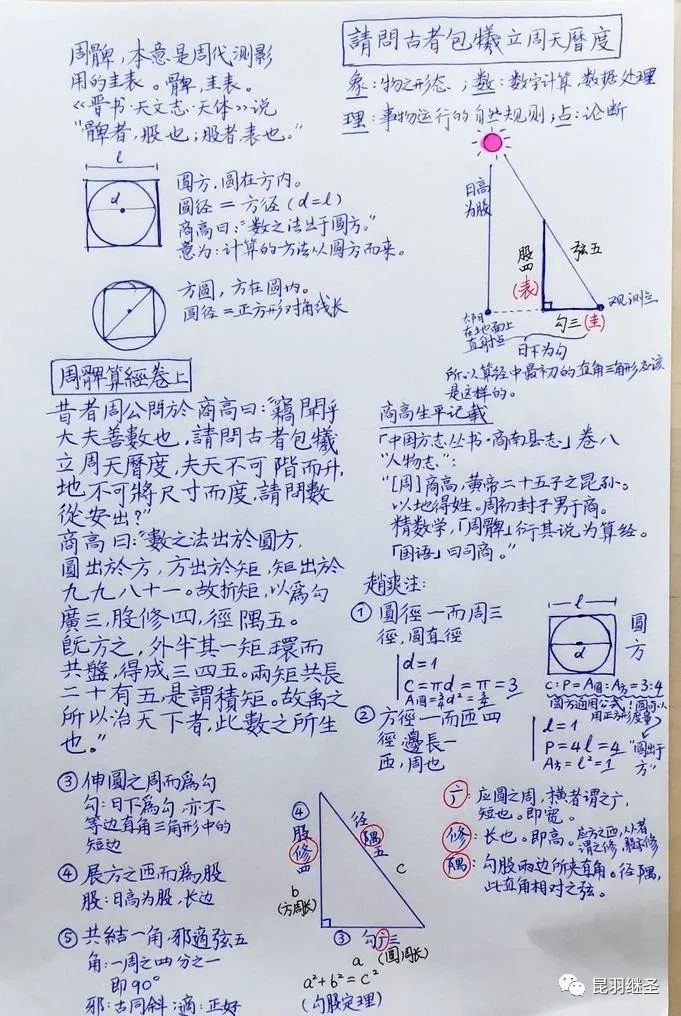 請問古者包犧立周天曆度
周髀,本意是周代测影
用的圭表。髀,圭表。
《晋书·天文志·天体》说
"髀者,股也;股者,表也。"
象:物之形态;数:数字计算,数据处理
理:事物运行的自然规则;点:论断
l
d
圆方,圆在方内。
圆径=方径(d=l)
商高曰:"数之法出于圆方。"
意为:计算的方法以圆方而来。
方圆,方在圆内。
圆径=正方形对角线长
日高
为股
股四
(表)
弦五
观测点
太阳
在地面上
直射点
勾三(圭)
日下为勾
所以算经中最初的直角三角形应该
是这样的。
周髀算經卷上
昔者周公問於商高曰:"竊聞乎
大夫善數也,請問古者包犧
立周天曆度,夫天不可階而升,
地不可將尺寸而度,請問數
從安出?"
商高曰:"數之法出於圓方,
圓出於方,方出於矩,矩出於
九九八十一。故折矩,以爲勾
廣三,股修四,徑隅五。
既方之,外半其一矩,環而
共盤,得成三四五。兩矩共長
二十有五,是謂積矩。故禹之
所以治天下者,此數之所生
也。"
商高生平记载
「中国方志丛书·商南县志」卷八
"人物志":
"[周]商高,黄帝二十五子之昆孙。
以地得姓。周初封子男于商。
精数学,「周髀」衍其说为算经。
「国语」曰司商。"
趙爽注:
① 圓徑一而周三
徑,圓直徑
d=1
C=πd=π=3
A圆=¾d²=¾
l
d
圆
方
C:P=A圆:A方=3:4
圆方通用公式!圆可以
用正方形度量
② 方徑一而匝四
徑,邊長一
匝,周也
l=1
P=4l=4
A方=l²=1
"圆出于
方"
③ 伸圓之周而爲勾
勾:日下爲勾,亦不
等边直角三角形中的
短边
④ 展方之匝而爲股
股:日高为股,长边
⑤ 共結一角,邪適弦五
角:一周之四分之一
即90°
邪:古同斜;適:正好
④
股
修
四
b
(方周长)
径
隅
五
c
③ 勾广三
a (圆周长)
a²+b²=c²
(勾股定理)
广:应圆之周,横者谓之广,
短也。即宽。
修:长也。即高。应方之匝,从者
谓之修,股亦修
隅:勾股两边所夹直角。径隅,
此直角相对之弦。
昆羽继圣